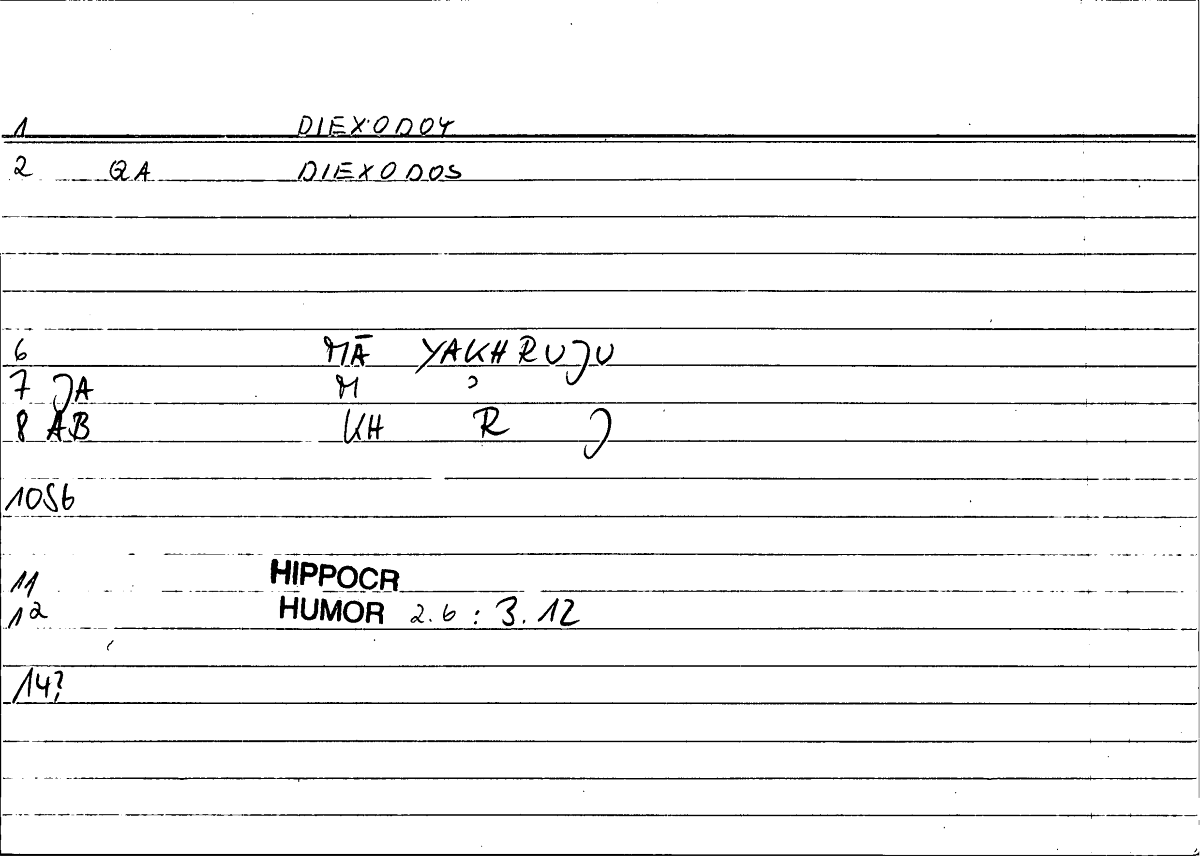 1 DIEXODOY
2 QA DIEXODOS
6 MĀ YAKHRUJU
7 JA M ʾ
8 AB KH R J
10S6
11 HIPPOCR
12 HUMOR 2.6 : 3.12
14?